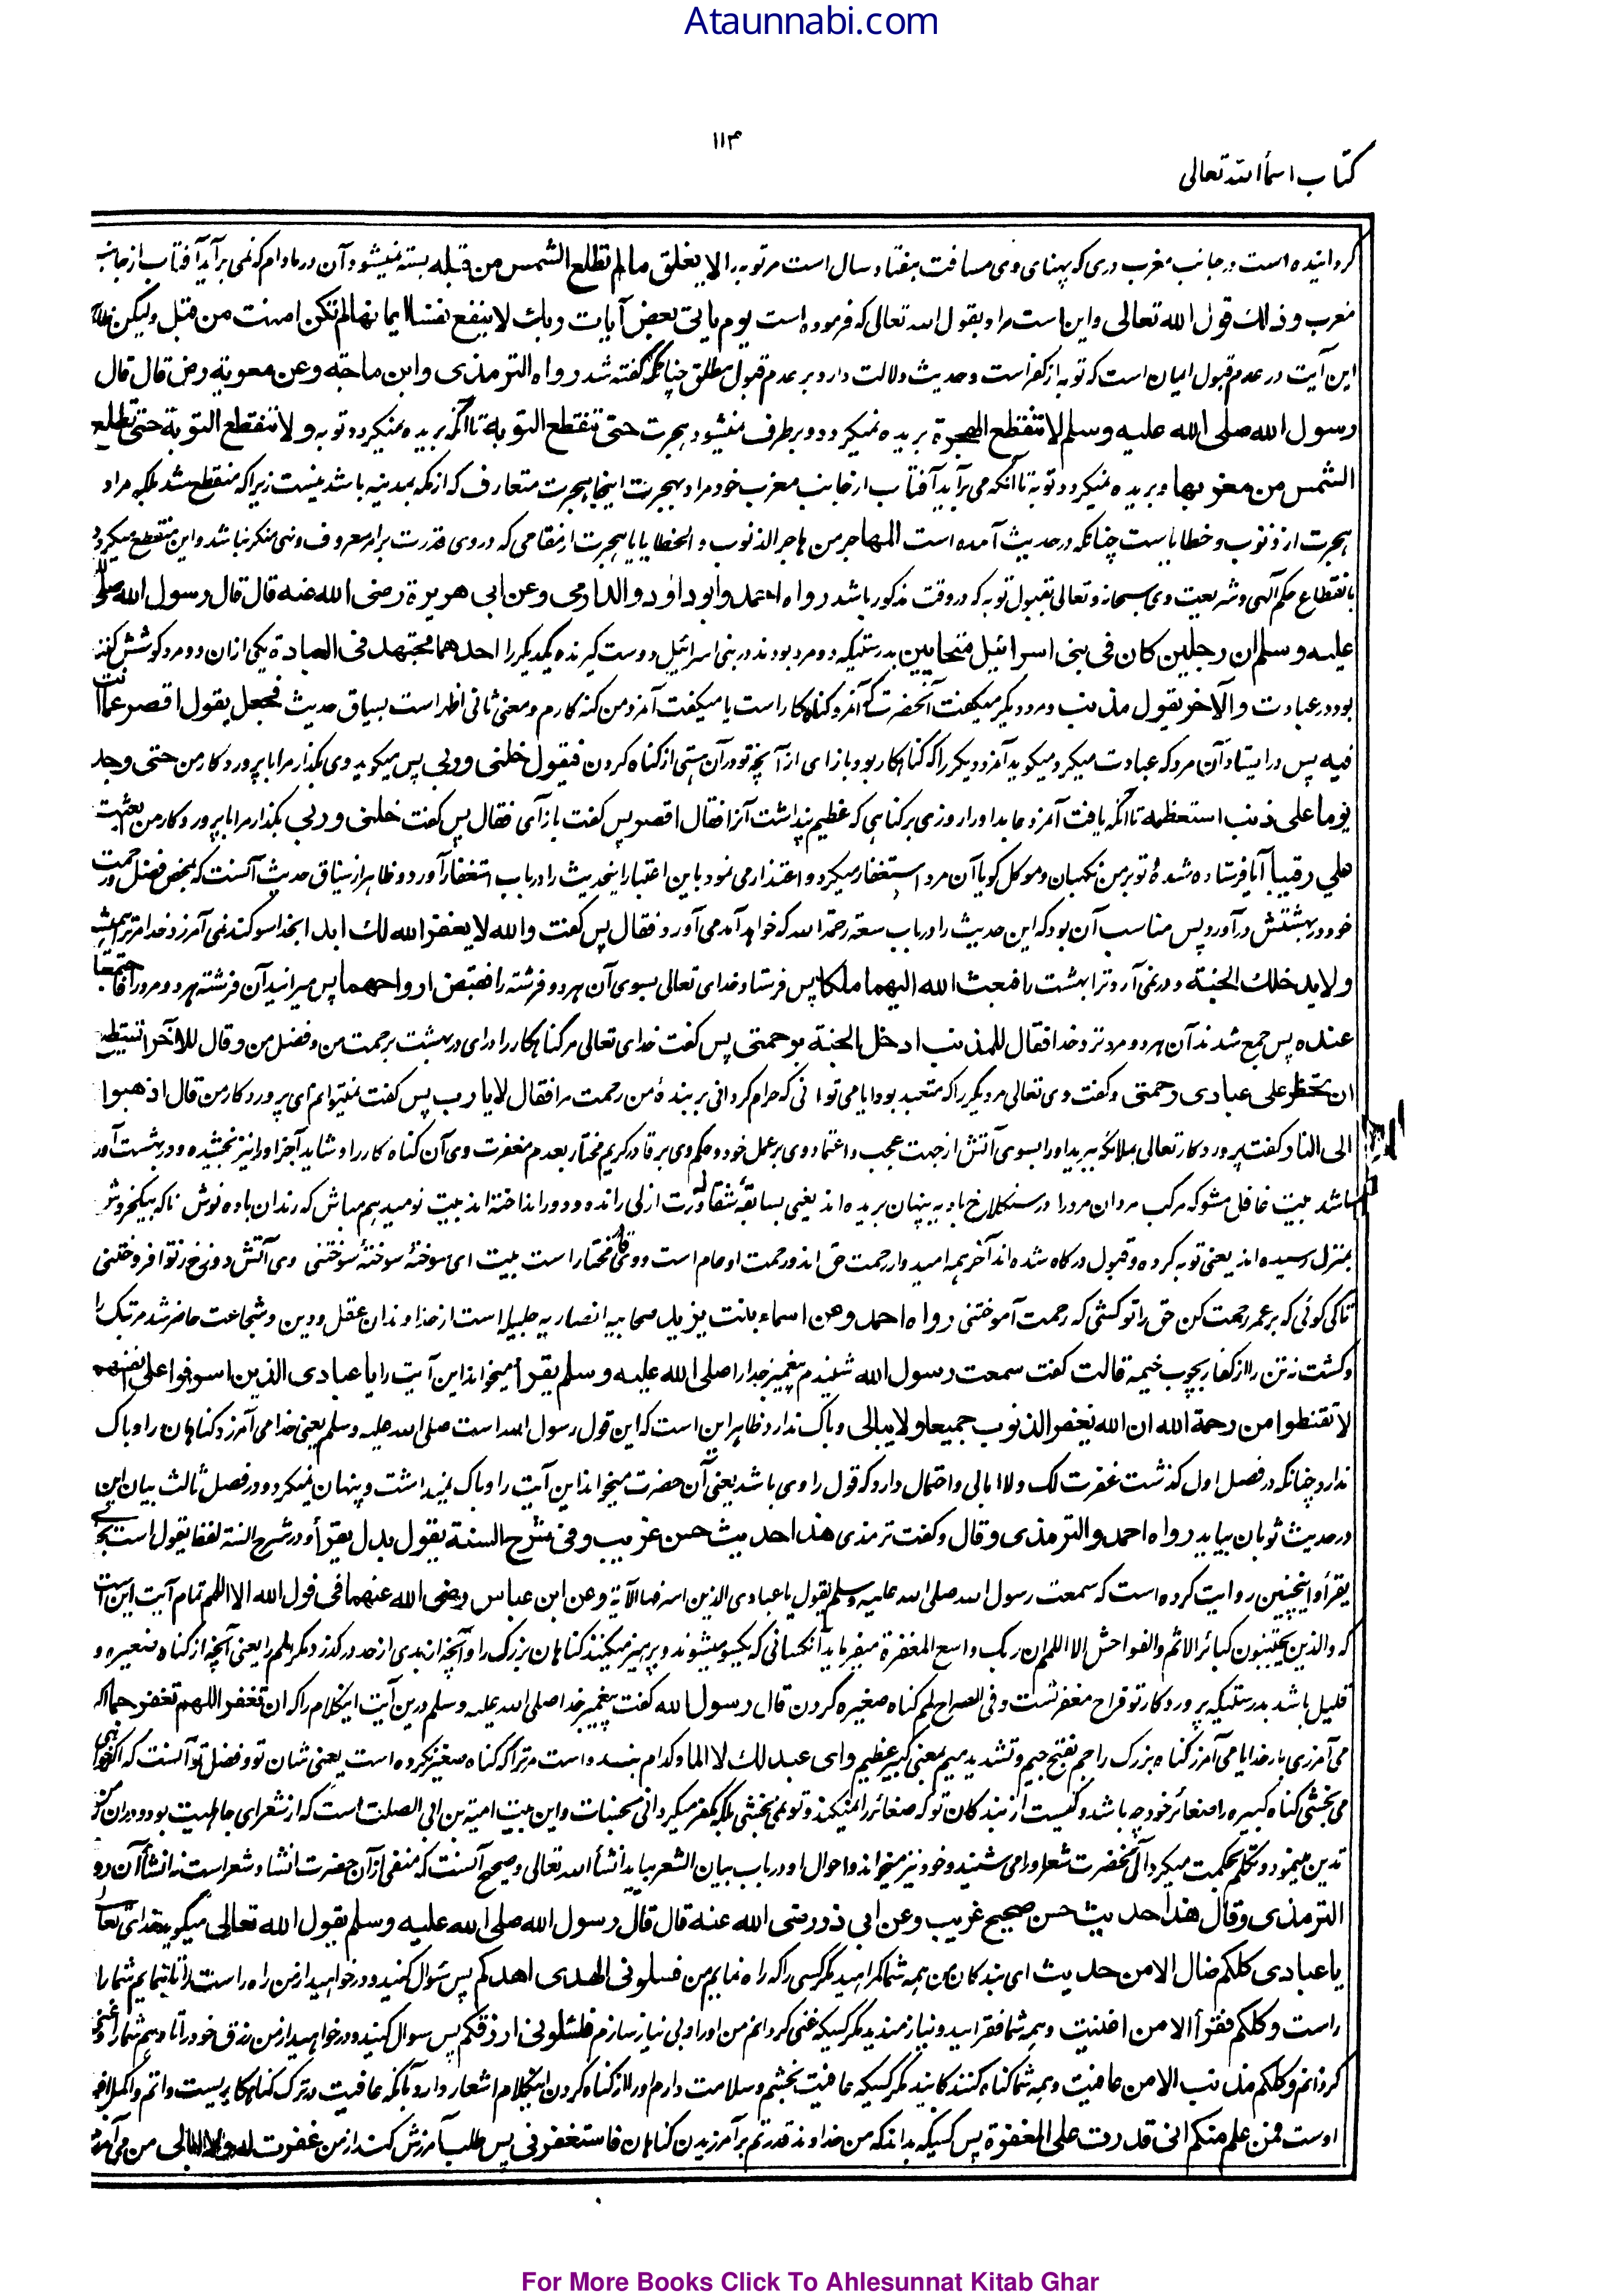 Ataunnabi.com
۱۱۴
کتاب اسماء الله تعالی
گردانیده است در جانب مغرب دری که پهنای وی مسافت هفتاد سال است مر توبه را لا یغلق ما لم تطلع الشمس من قبله بسته نمیشود آن در مادام که نمی برآید آفتاب از جانب
مغرب وذلك قول الله تعالی و این است مراد بقول الله تعالی که فرموده است یوم یاتی بعض آیات ربك لا ینفع نفسا ایمانها لم تکن امنت من قبل ولیکن
این آیت در عدم قبول ایمان است که توبه از کفر است و حدیث دلالت دارد بر عدم قبول مطلق چنانکه گفته شد رواه الترمذی وابن ماجة وعن معویة رض قال قال
رسول الله صلی الله علیه وسلم لا تنقطع الهجرة بریده نمیگردد و برطرف نمیشود هجرت حتی تنقطع التوبة تا آنکه بریده نمیگردد توبه ولا تنقطع التوبة حتی تطلع
الشمس من مغربها و بریده نمیگردد توبه تا آنکه می برآید آفتاب از جانب مغرب خود مراد بهجرت اینجا هجرت متعارف که از مکه بمدینه باشد نیست زیرا که منقطع شد بلکه مراد
هجرت از ذنوب و خطایاست چنانکه در حدیث آمده است المهاجر من هاجر الذنوب والخطایا یا هجرت از مقامی که در وی قدرت بر امر معروف و نهی منکر نباشد و این منقطع میگردد
بانقطاع حکم الهی و شریعت وی سبحانه و تعالی بقبول توبه که در وقت مذکور باشد رواه احمد وابو داود والدارمی وعن ابی هریرة رضی الله عنه قال قال رسول الله صلی الله
علیه وسلم ان رجلین کان فی بنی اسرائیل متحابین بدرستیکه دو مرد بودند در بنی اسرائیل دوست گیرنده یکدیگر را احدهما مجتهد فی العبادة یکی ازان دو مرد کوشش کننده
بود در عبادت والآخر یقول مذنب و مرد دیگر میگفت آنحضرت که آنمرد گناه‌کار است یا میگفت آنمرد من گنه‌کارم و معنی ثانی اظهر است بسیاق حدیث فجعل یقول اقصر عما انت
فیه پس در ایستاد آن مرد که عبادت میکرد میگوید آنمرد دیگر را که گناهکار بود باز ای از آنچه تو در آن هستی از گناه کردن فیقول خلنی وربی پس میگوید وی بگذار مرا با پروردگار من حتی وجده
یوما علی ذنب استعظمه تا آنکه یافت آنمرد عابد او را روزی بر گناهی که عظیم پنداشت آنرا فقال اقصر پس گفت باز آی فقال پس گفت خلنی وربی بگذار مرا با پروردگار من ابعثت
علی رقیبا آیا فرستاده شدهٔ تو بر من نگهبان و موکل گویا آن مرد استغفار میکرد و اعتذار می نمود باین اعتبار اینحدیث را در باب استغفار آورد و ظاهر از سیاق حدیث آنست که بمحض فضل و رحمت
خود در بهشتش در آورد پس مناسب آن بود که این حدیث را در باب سعة رحمة الله که خواهد آمد می آورد فقال پس گفت والله لا یغفر الله لك ابدا بخدا سوگند نمی آمرزد خدا مر ترا همیشه
ولا یدخلك الجنة و در نمی آرد ترا بهشت را فبعث الله الیهما ملکا پس فرستاد خدای تعالی بسوی آن هر دو فرشته را فقبض ارواحهما پس میرانید آن فرشته هر دو مرد را فاجتمعا
عنده پس جمع شدند آن هر دو مرد نزد خدا فقال للمذنب ادخل الجنة برحمتی پس گفت خدای تعالی مر گناهکار را درای در بهشت برحمت من و فضل من وقال للآخر اتستطیع
ان تحظر علی عبادی رحمتی و گفت وی تعالی مر دیگر را که متعبد بود ایا می توانی که حرام گردانی بر بندهٔ من رحمت مرا فقال لا یا رب پس گفت نمیتوانم ای پروردگار من قال اذهبوا
الی النار گفت پروردگار تعالی بملائکه ببرید او را بسوی آتش از جهت عجب و اعتماد وی بر عمل خود و حکم وی بر قادر کریم مختار بعدم مغفرت وی آن گناه کار را و شاید آخر او را نیز بخشیده و در بهشت آورده
باشد بیت غافل مشو که مرکب مردان مرد را در سنگلاخ بادیه پیها بریده اند یعنی بسابقهٔ شقاوت ازلی رانده و دور انداخته اند بیت نومید هم مباش که رندان باده نوش ناگه بیکخروش
بمنزل رسیده اند یعنی توبه کرده و قبول درگاه شده اند آخر همه امیدوار رحمت حق اند و رحمت او عام است و وی مختار است بیت ای سوختهٔ سوختهٔ سوختنی وی آتش دوزخ ز تو افروختنی
تا کی گوئی که بر عمر رحمت کن حق را تو کشی که رحمت آموختنی رواه احمد وعن اسماء بنت یزید صحابیه انصاریه جلیله است از خداوندان عقل و دین و شجاعت حاضر شد یرموک را
و کشت نه تن را از کفار بچوب خیمه قالت گفت سمعت رسول الله شنیدم پیغمبر خدا را صلی الله علیه وسلم یقرأ میخواند این آیت را یا عبادی الذین اسرفوا علی انفسهم
لا تقنطوا من رحمة الله ان الله یغفر الذنوب جمیعا ولا یبالی و باک ندارد ظاهر این است که این قول رسول الله است صلی الله علیه وسلم یعنی خدا می آمرزد گناهان را و باک
ندارد چنانکه در فصل اول گذشت غفرت لک ولا ابالی و احتمال دارد که قول راوی باشد یعنی آن حضرت میخواند این آیت را و باک نمیداشت و پنهان نمیکرد و در فصل ثالث بیان این
در حدیث ثوبان بیاید رواه احمد والترمذی وقال و گفت ترمذی هذا حدیث حسن غریب وفی شرح السنة یقول بدل یقرأ و در شرح السنة لفظ یقول است بجای
یقرأ و اینچنین روایت کرده است که سمعت رسول الله صلی الله علیه وسلم یقول یا عبادی الذین اسرفوا الآیة وعن ابن عباس رضی الله عنهما فی قول الله الا اللمم تمام آیت این است
که والذین یجتنبون کبائر الاثم والفواحش الا اللمم ان ربک واسع المغفرة میفرماید آنکسانی که یکسو میشوند و پرهیز میکنند گناهان بزرگ را و آنچه از بدی از حد در گذرد مگر لمم را یعنی آنچه از گناه صغیره و
قلیل باشد بدرستیکه پروردگار تو فراخ مغفرتست وفی الصراح لمم گناه صغیره کردن قال رسول الله گفت پیغمبر خدا صلی الله علیه وسلم درین آیت اینکلام را که ان تغفر اللهم تغفر جما اگر
می آمرزی بار خدایا می آمرز گناه بزرگ را جم بفتح جیم و تشدید میم بمعنی کبیر عظیم وای عبد لك لا الما و کدام بنده است مر ترا که گناه صغیره نکرده است یعنی شان تو و فضل تو آنست که اگر خواهی
می بخشی گناه کبیره را صغائر خود چه باشد و کیست از بندگان تو که صغائر را نمیکند و تو نمی بخشی بلکه مکفر میگردانی بحسنات و این بیت امیة بن ابی الصلت است که از شعرای جاهلیت بود و دران
تدین مینمود و تکلم بحکمت میکرد آنحضرت شعر او را می شنید و خود نیز میخواند و احوال او در باب بیان الشعر بیاید انشأ الله تعالی و صحیح آنست که منفی از آن حضرت انشاد شعر است نه انشأ آن رواه
الترمذی وقال هذا حدیث حسن صحیح غریب وعن ابی ذر رضی الله عنه قال قال رسول الله صلی الله علیه وسلم یقول الله تعالی میگوید خدای تعالی
یا عبادی کلکم ضال الا من هدیت ای بندگان من همه شما گمراهید مگر کسی را که راه نمایم من فسلونی الهدی اهدکم پس سوال کنید و درخواهید از من راه راست را تا بنمایم شما را راه
راست وکلکم فقرأ الا من اغنیت و همه شما فقرایید و نیازمندید مگر کسیکه غنی گردانم من او را و بی نیاز سازم فسئلونی ارزقکم پس سوال کنید و درخواهید از من رزق خود را تا دهم شما را و غنی
گردانم وکلکم مذنب الا من عافیت و همه شما گناه کنندگانید مگر کسیکه عافیت بخشم و سلامت دارم او را از گناه کردن اینکلام اشعار دارد بآنکه عافیت در ترک گناه‌کاریست و اتم و اکمل افراد
اوست فمن علم منکم انی قدرت علی المغفرة پس کسیکه بداند که من خداوند قدرتم بر آمرزیدن گناهان فاستغفرنی پس طلب آمرزش کند از من غفرت له ولا ابالی من می آمرزم
For More Books Click To Ahlesunnat Kitab Ghar